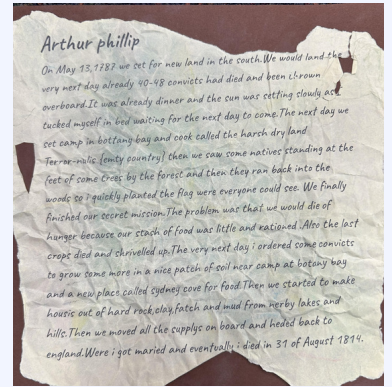 Arthur phillip
On May 13,1787 we set for new land in the south.We would land the
very next day already 40-48 convicts had died and been thrown
overboard.It was already dinner and the sun was setting slowly as I
tucked myself in bed waiting for the next day to come.The next day we
set camp in bottany bay and cook called the harsh dry land
Terror-nulis [emty country] then we saw some natives standing at the
feet of some trees by the forest and then they ran back into the
woods so i quickly planted the flag were everyone could see. We finally
finished our secret mission.The problem was that we would die of
hunger because our stash of food was little and rationed .Also the last
crops died and shrivelled up.The very next day i ordered some convicts
to grow some more in a nice patch of soil near camp at botany bay
and a new place called sydney cove for food.Then we started to make
housis out of hard rock,clay,fatch and mud from nerby lakes and
hills.Then we moved all the supplys on board and heded back to
england.Were i got maried and eventually i died in 31 of August 1814.